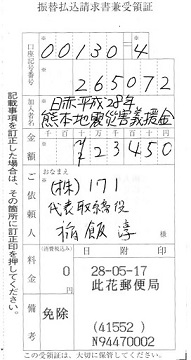 振替払込請求書兼受領証
口座記号番号
00130 4
265072
加入者名
日赤平成28年
熊本地震災害義援金
金額
千 百 十 万 千 百 十 円
¥23450
ご依頼人
おなまえ
(株)171
代表取締役
稲飯 淳
料金
(消費税込み)
0
円
日附印
28-05-17
此花郵便局
備考
免除
(41552)
N94470002
この受領証は、大切に保管してください。
記載事項を訂正した場合は、その箇所に訂正印を押してください。